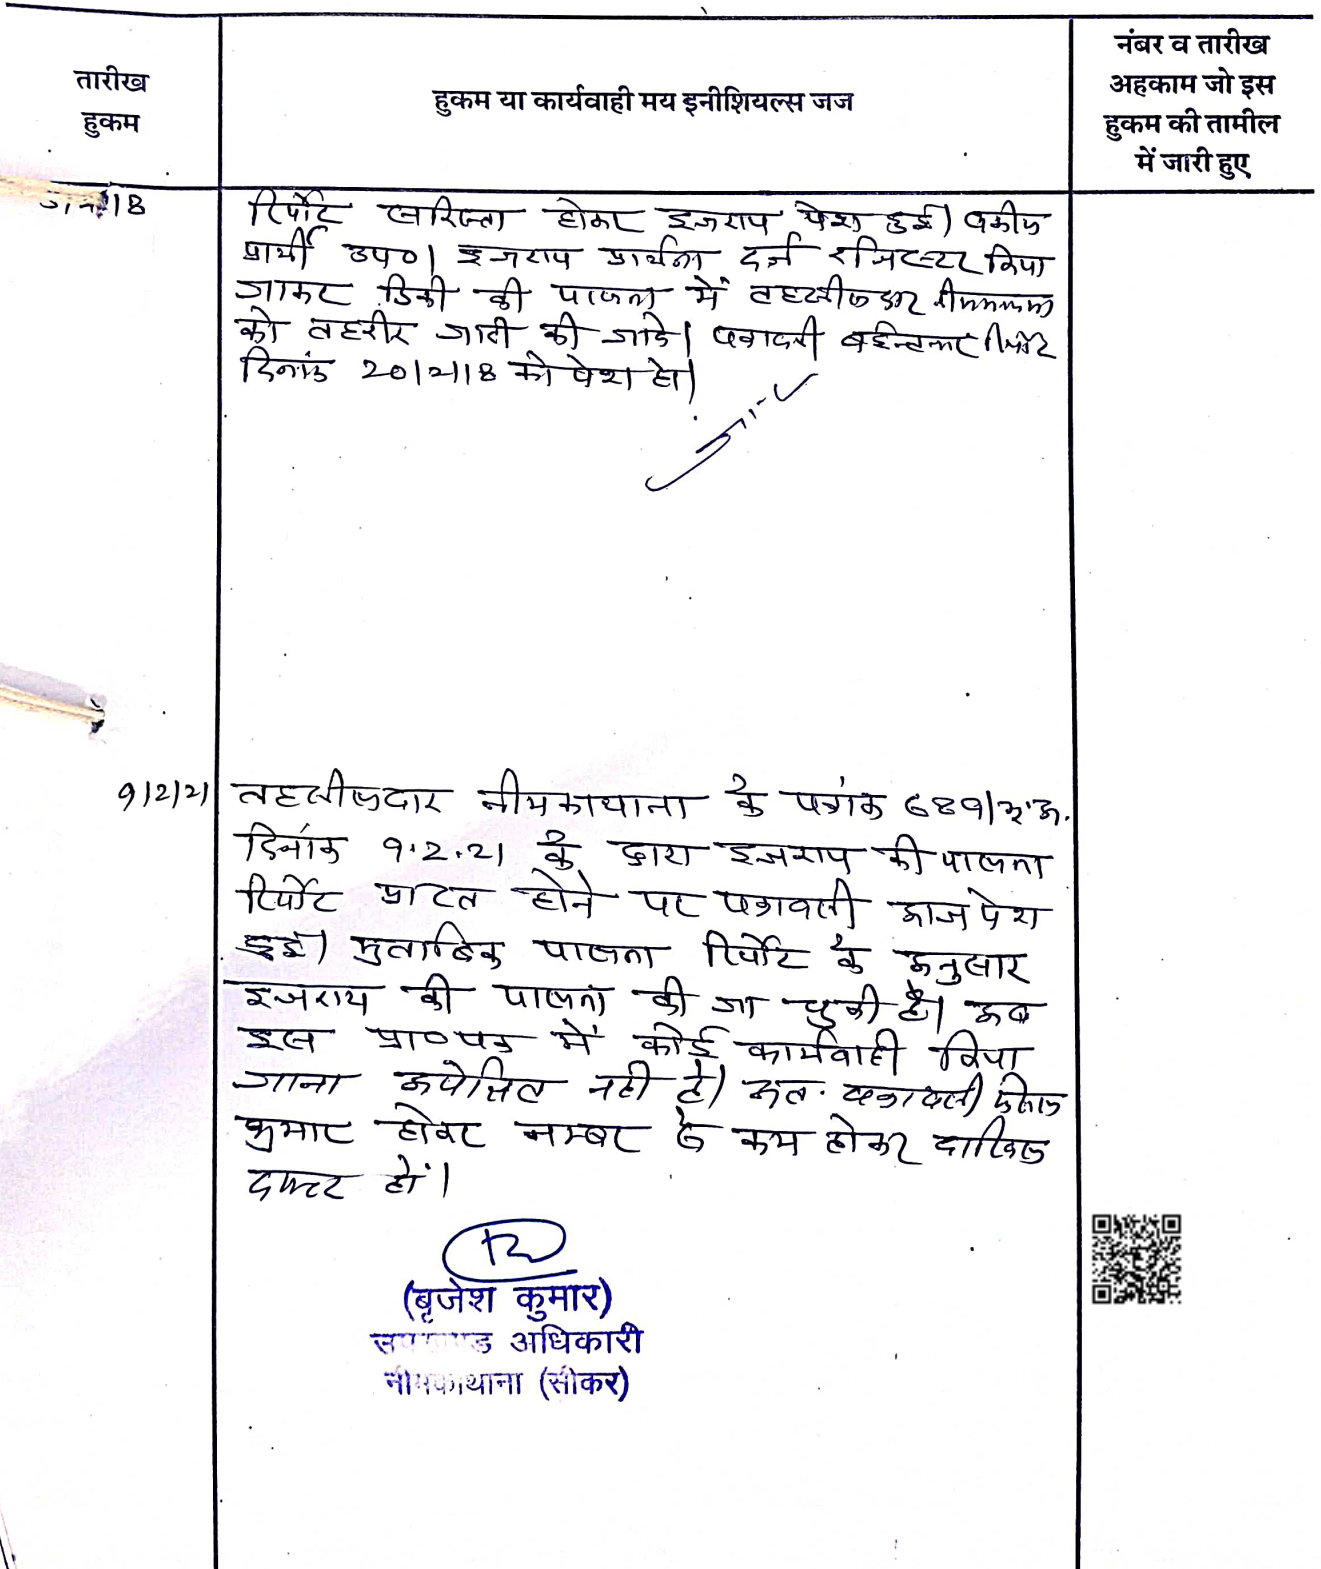 तारीख
हुकम
हुकम या कार्यवाही मय इनीशियल्स जज
नंबर व तारीख
अहकाम जो इस
हुकम की तामील
में जारी हुए
रिर्पोट सरिस्ता होकर इजराय पेश हुई। वकील
प्रार्थी उप०। इजराय प्रार्थना दर्ज रजिस्टर किया
जाकर डिक्री की पालना में तहसीलदार नीमकाथाना
को तहरीर जारी की जावे। पत्रावली बइन्तजार रिर्पोट
दिनांक 20/2/18 को पेश हो।
9/2/21
तहसीलदार नीमकाथाना के पत्रांक 689/
दिनांक 9.2.21 के द्वारा इजराय की पालना
रिर्पोट प्राप्त होने पर पत्रावली आज पेश
हुई। मुताबिक पालना रिर्पोट के अनुसार
इजराय की पालना की जा चुकी है। अब
इस प्रा०पत्र में कोई कार्यवाही किया
जाना अपेक्षित नही है। अत. पत्रावली फैसल
शुमार होकर नम्बर से कम होकर दाखिल
दफ्तर हों।
(बृजेश कुमार)
उपखण्ड अधिकारी
नीमकाथाना (सीकर)